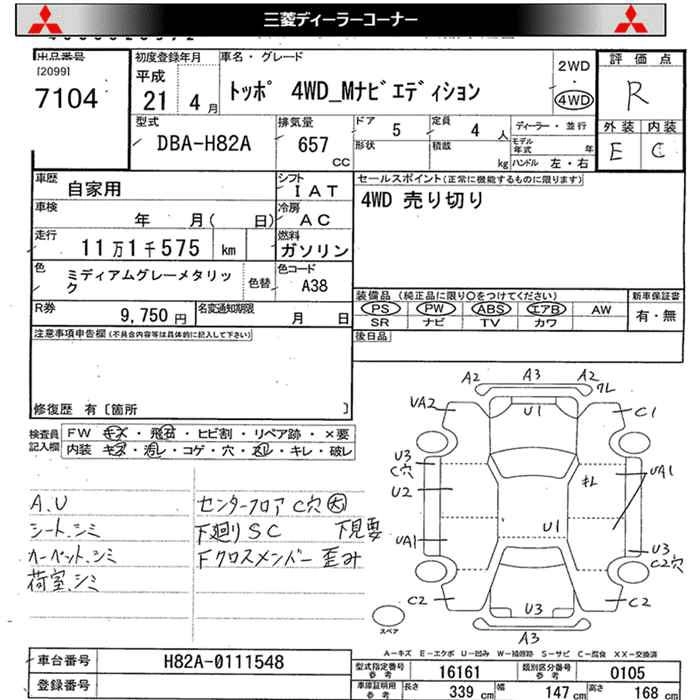 三菱ディーラーコーナー
出品番号
[2099]
7104
初度登録年月
平成
21年 4月
車名・グレード
トッポ 4WD_Mナビエディション
2WD
・
4WD
評価点
R
外装 内装
E C
型式
DBA-H82A
排気量
657
CC
ドア
5
定員
4 人
形状
積載
kg
ディーラー・並行
モデル年式 年
ハンドル 左・右
車歴
自家用
シフト
IAT
車検
年 月( 日)
冷房
AC
走行
11万1千575 km
燃料
ガソリン
色
ミディアムグレーメタリック
色替
色コード
A38
R券
9,750円
名変通知期限
月 日
セールスポイント(正常に機能するものに限ります)
4WD 売り切り
装備品 (純正品に限り〇をつけてください)
PS PW ABS エアB AW
SR ナビ TV カワ
新車保証書
有・無
後日品
注意事項申告欄(不具合内容等は具体的に記入して下さい)
修復歴 有〔箇所 〕
検査員記入欄
FW キズ・飛石・ヒビ割・リペア跡・×要
内装 キズ・汚レ・コゲ・穴・ネジ・キレ・破レ
A.U
シート.シミ
カーペット.シミ
荷室.シミ
センターフロア C穴 大
下廻りSC 下見要
Fクロスメンバー歪み
A2 A3 A2 ワレ
UA2 U1 C1
U3
C穴
U2
キレ
UA1
UA1 U1
U3
C2穴
C2 U3 C2
A3
スペア
A-キズ E-エクボ U-凹み W-補修跡 S-サビ C-腐食 XX-交換済
車台番号 H82A-0111548
登録番号
型式指定番号 参考 16161
類別区分番号 参考 0105
車庫証明用 参考 長さ 339 cm 幅 147 cm 高さ 168 cm